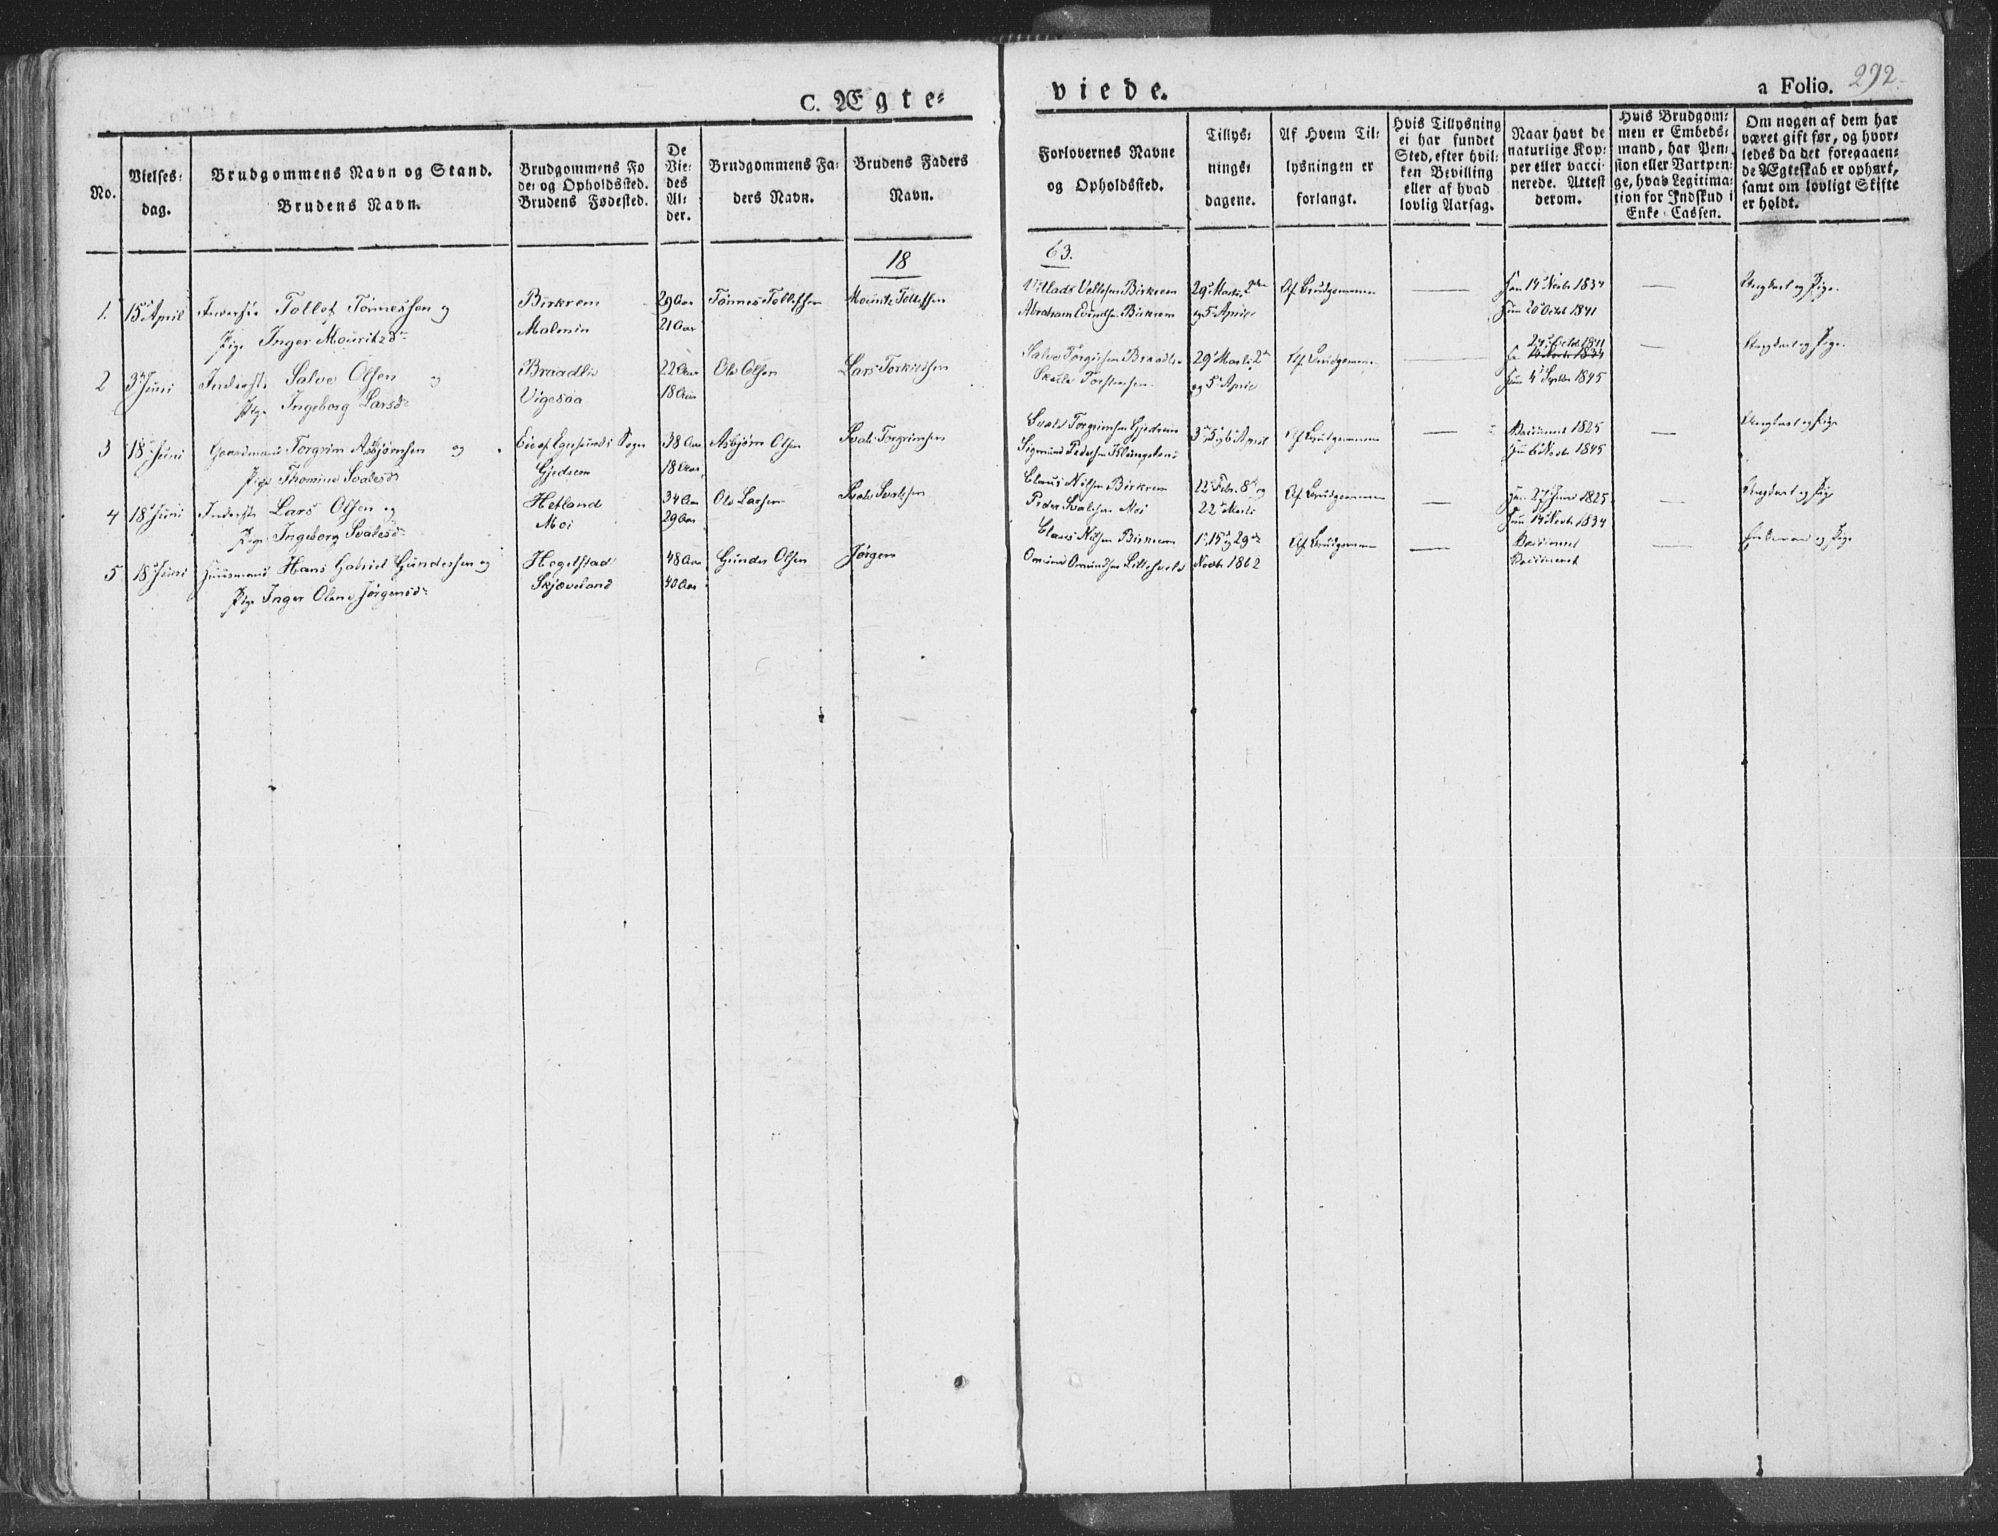 C. Ægte-
viede.
a Folio. 292.
No.
Vielses-
dag.
Brudgommens Navn og Stand.
Brudens Navn.
Brudgommens Fø
de- og Opholdssted.
Brudens Fødested.
De
Vie-
des
Al-
der.
Brudgommens Fa-
ders Navn.
Brudens Faders
Navn.
Forlovernes Navne
og Opholdssted.
Tillys-
nings-
dagene.
Af Hvem Til-
lysningen er
forlangt.
Hvis Tillysning
ei har fundet
Sted, efter hvil-
ken Bevilling
eller af hvad
lovlig Aarsag.
Naar havt de
naturlige Kop-
per eller vacci-
nerede. Attest
derom.
Hvis Brudgom-
men er Embeds-
mand, har Pen-
sion eller Vartpen-
ge, hvis Legitima-
tion for Indskud i
Enke-Cassen.
Om nogen af dem har
været gift før, og hvor-
ledes da det foregaaen-
de Ægteskab er ophørt,
samt om lovligt Skifte
er holdt.
18
63.
1. 15 April Tollef Tønnessen og
Pige Inger Mouritzd
Birkrem
Malmin
29 Aar
21 Aar
Tønnes Tollefsen
Mouritz Tollefsen
Birkrem
Abraham Birkrem
29 Marts, 2den
og 5 April
Af Brudgommen
Han 14 Novbr 1834
Hun 20 Octob 1841
Ungkarl og Pige.
2 3 Juni Inderste Salve Olsen og
Pige Ingeborg Larsd
Braadli
Vigesaa
22 Aar
18 Aar
Ole Olsen
Lars Torkildsen
Salve Torgiersen Braadli
Torstensen
29 Marts, 2
og 5 April
Af Brudgommen
1841
14 Novbr 1834
Hun 4 Septbr 1845
Ungkarl og Pige.
3 18 Juni Gaardmand Torgrim Asbjørnsen og
Pige Thomine Svalesd
Eie af Egersunds Sogn
Gjedrem
38 Aar
18 Aar
Asbjørn Olsen
Svale Torgrimsen
Svale Torgrimsen Gjedrem
Sigmund Pedersen
3 5 6 April
Af Brudgommen
Vaccineret 1825
Hun 6 Novbr 1845
Ungkarl og Pige
4 18 Juni Inderste Lars Olsen og
Pige Ingeborg Svalesd
Hetland
Moi
34 Aar
29 Aar
Ole Larsen
Svale Svalesen
Claus Nilsen Birkrem
Peder Svalesen Moi
22 Febr. 8 og
22 Marts
Af Brudgommen
Han 27 Juni 1825
Hun 14 Novbr 1834
Ungkarl og Pige
5 18 Juni Huusmand Hans Gabriel Gundersen og
Pige Inger Olene Jørgensd
Hegelstad
Skjæveland
48 Aar
40 Aar
Gunder Olsen
Jørgen
Claus Nilsen Birkrem
Omund Omundsen
1, 15 og 29
Novbr 1862
Af Brudgommen
Vaccineret
Vaccineret
Enkemand og Pige